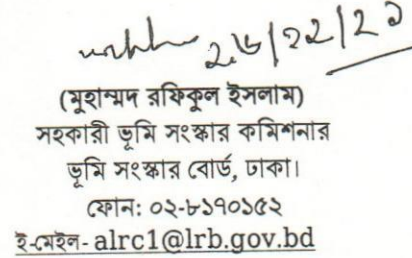 (মুহাম্মদ রফিকুল ইসলাম)
সহকারী ভূমি সংস্কার কমিশনার
ভূমি সংস্কার বোর্ড, ঢাকা।
ফোন: ০২-৮১৭০১৫২
ই-মেইল- alrc1@lrb.gov.bd